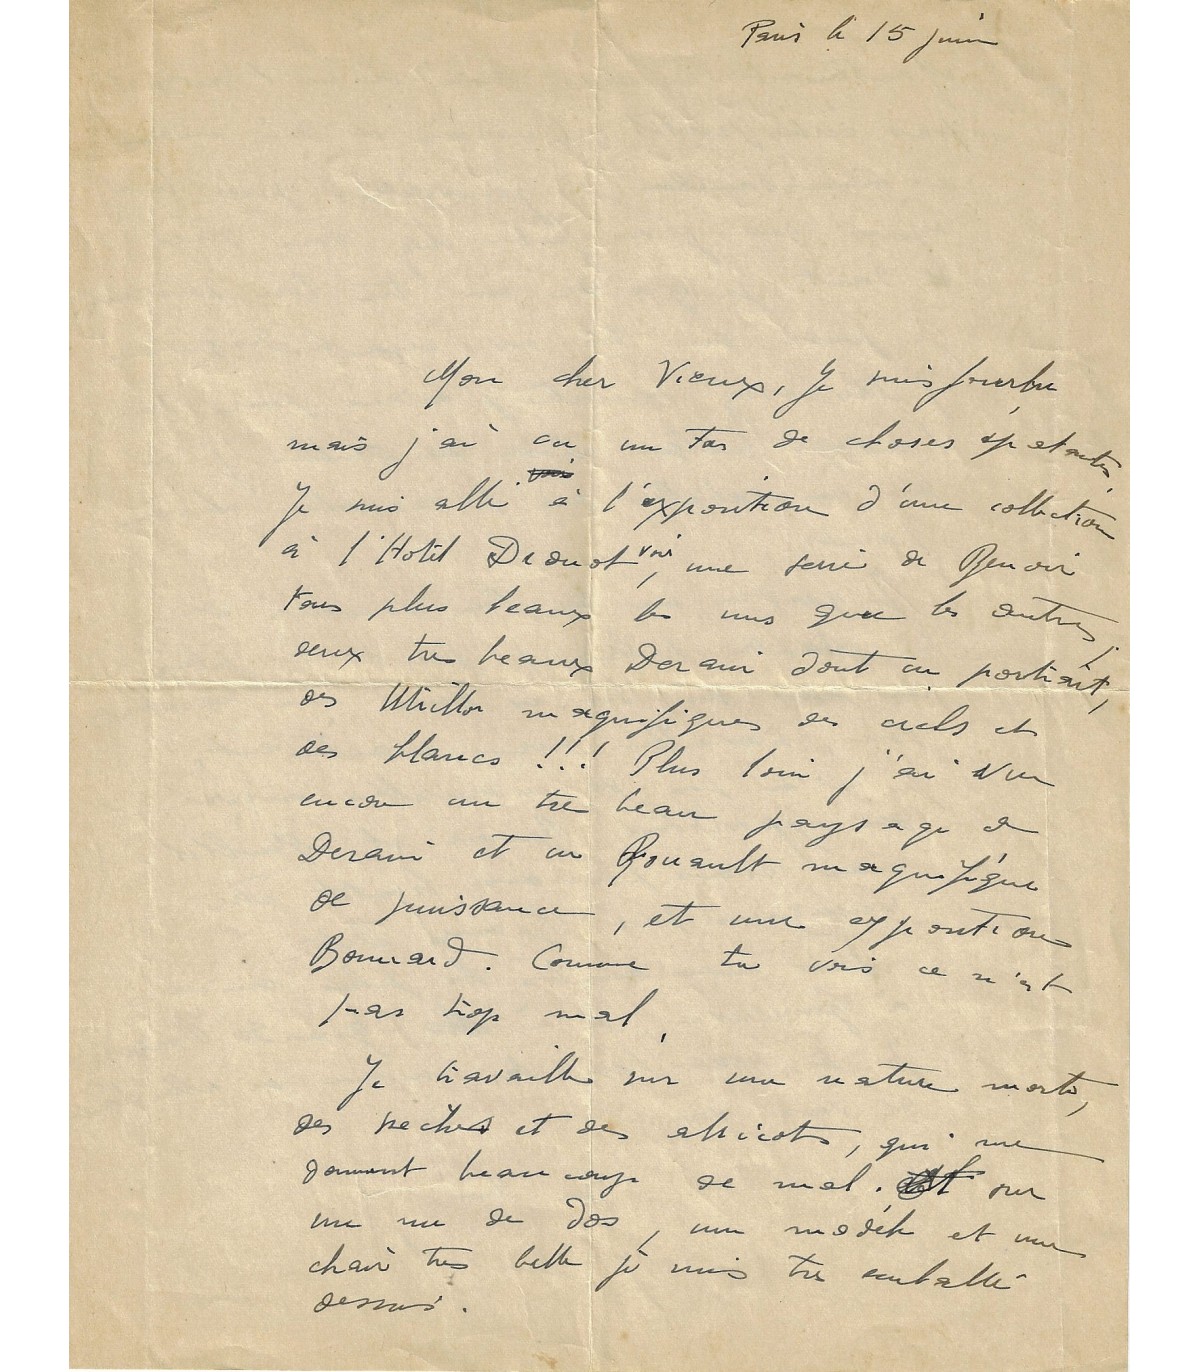 Paris le 15 juin
Mon cher Vieux, Je suis fourbu
mais j'ai vu un tas de choses épatantes.
Je suis allé à l'exposition d'une collection
à l'Hotel Drouot voir, une serie de Renoir
tous plus beaux les uns que les autres,
deux tres beaux Derain dont un portrait,
des Utrillo magnifiques des ciels et
des blancs !!! Plus loin j'ai vu
encore un tres beau paysage de
Derain et un Rouault magnifique
de puissance, et une exposition
Bonnard. Comme tu vois ce n'est
pas trop mal,
Je travaille sur une nature morte,
des peches et des abricots, qui me
donnent beaucoup de mal. sur
un nu de dos, un modèle et une
chair tres belle je suis tres emballé
dessus.